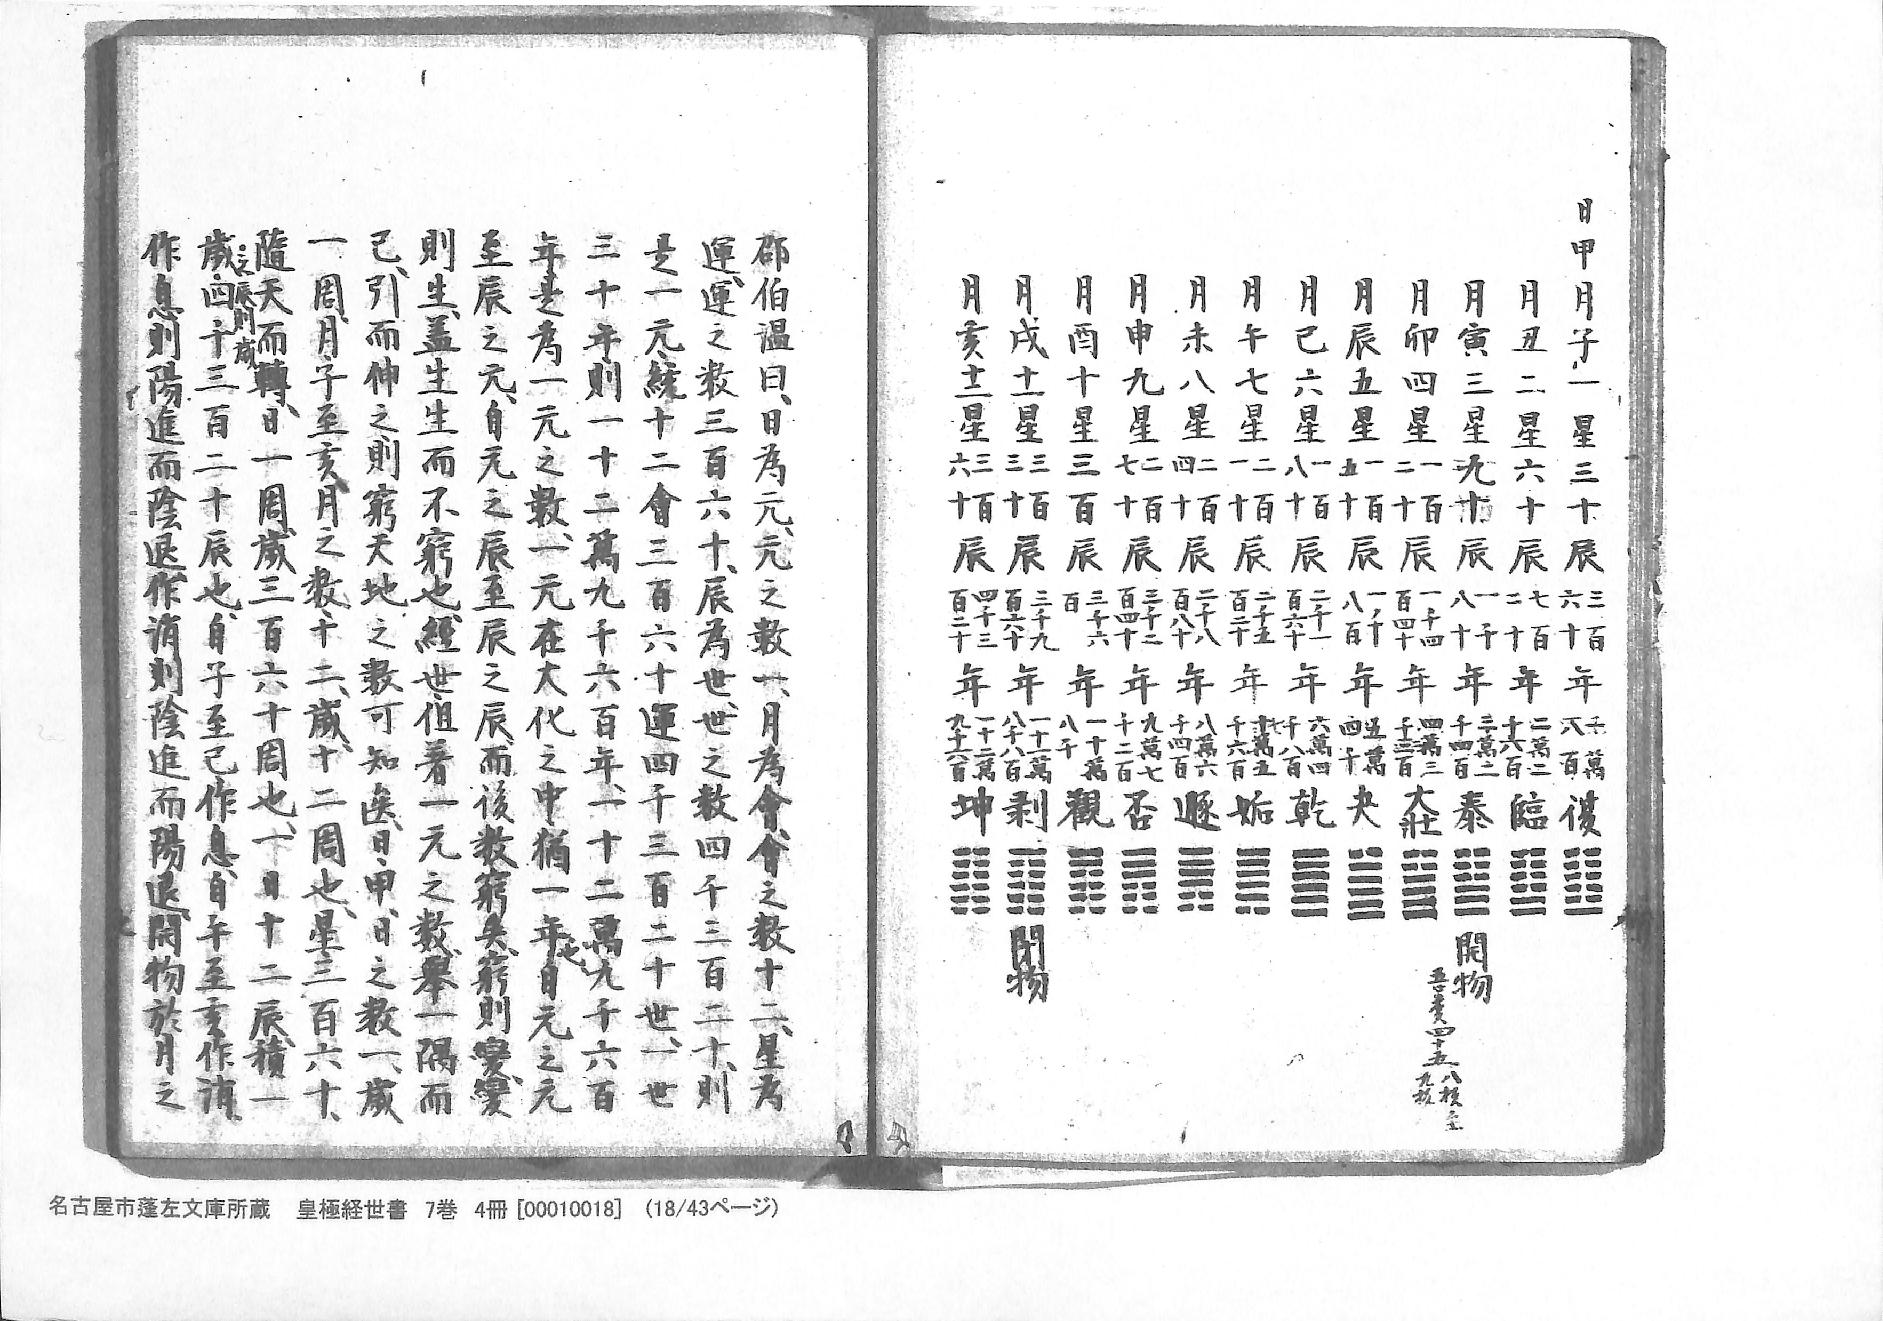 日甲月子一星三十辰三百六十年一萬八百復
月丑二星六十辰七百二十年二萬一千六百臨
月寅三星九十辰一千八十年三萬二千四百泰 開物
月卯四星一百二十辰一千四百四十年四萬三千二百大壯
月辰五星一百五十辰一千八百年五萬四千夬
月巳六星一百八十辰二千一百六十年六萬四千八百乾
月午七星二百一十辰二千五百二十年七萬五千六百姤
月未八星二百四十辰二千八百八十年八萬六千四百遯
月申九星二百七十辰三千二百四十年九萬七千二百否
月酉十星三百辰三千六百年一十萬八千觀
月戌十一星三百三十辰三千九百六十年一十一萬八千八百剥 閉物
月亥十二星三百六十辰四千三百二十年一十二萬九千六百坤
邵伯温曰、日為元、元之数一、月為會、會之数十二、星為
運、運之数三百六十、辰為世、世之数四千三百二十、則
是一元統十二會三百六十運四千三百二十世、一世
三十年則一十二萬九千六百年、一十二萬九千六百
年是為一元之數、一元在大化之中猶一年也、自元之元
至辰之元、自元之辰至辰之辰、而後数窮矣、窮則變、變
則生、盖生生而不窮也、經世但著一元之数、舉一隅而
已、引而伸之、則窮天地之数可知矣、日甲、日之数一、歲
一周、月子至亥、月之数十二、歲十二周也、星三百六十、
隨天而轉、日一周、歲三百六十周也、一日十二辰、積一
歲之辰則歲四千三百二十辰也、自子至巳作息、自午至亥作消、
作息則陽進而陰退、作消則陰進而陽退、開物於月之
名古屋市蓬左文庫所蔵 皇極経世書 7巻 4冊 [00010018] (18/43ページ)